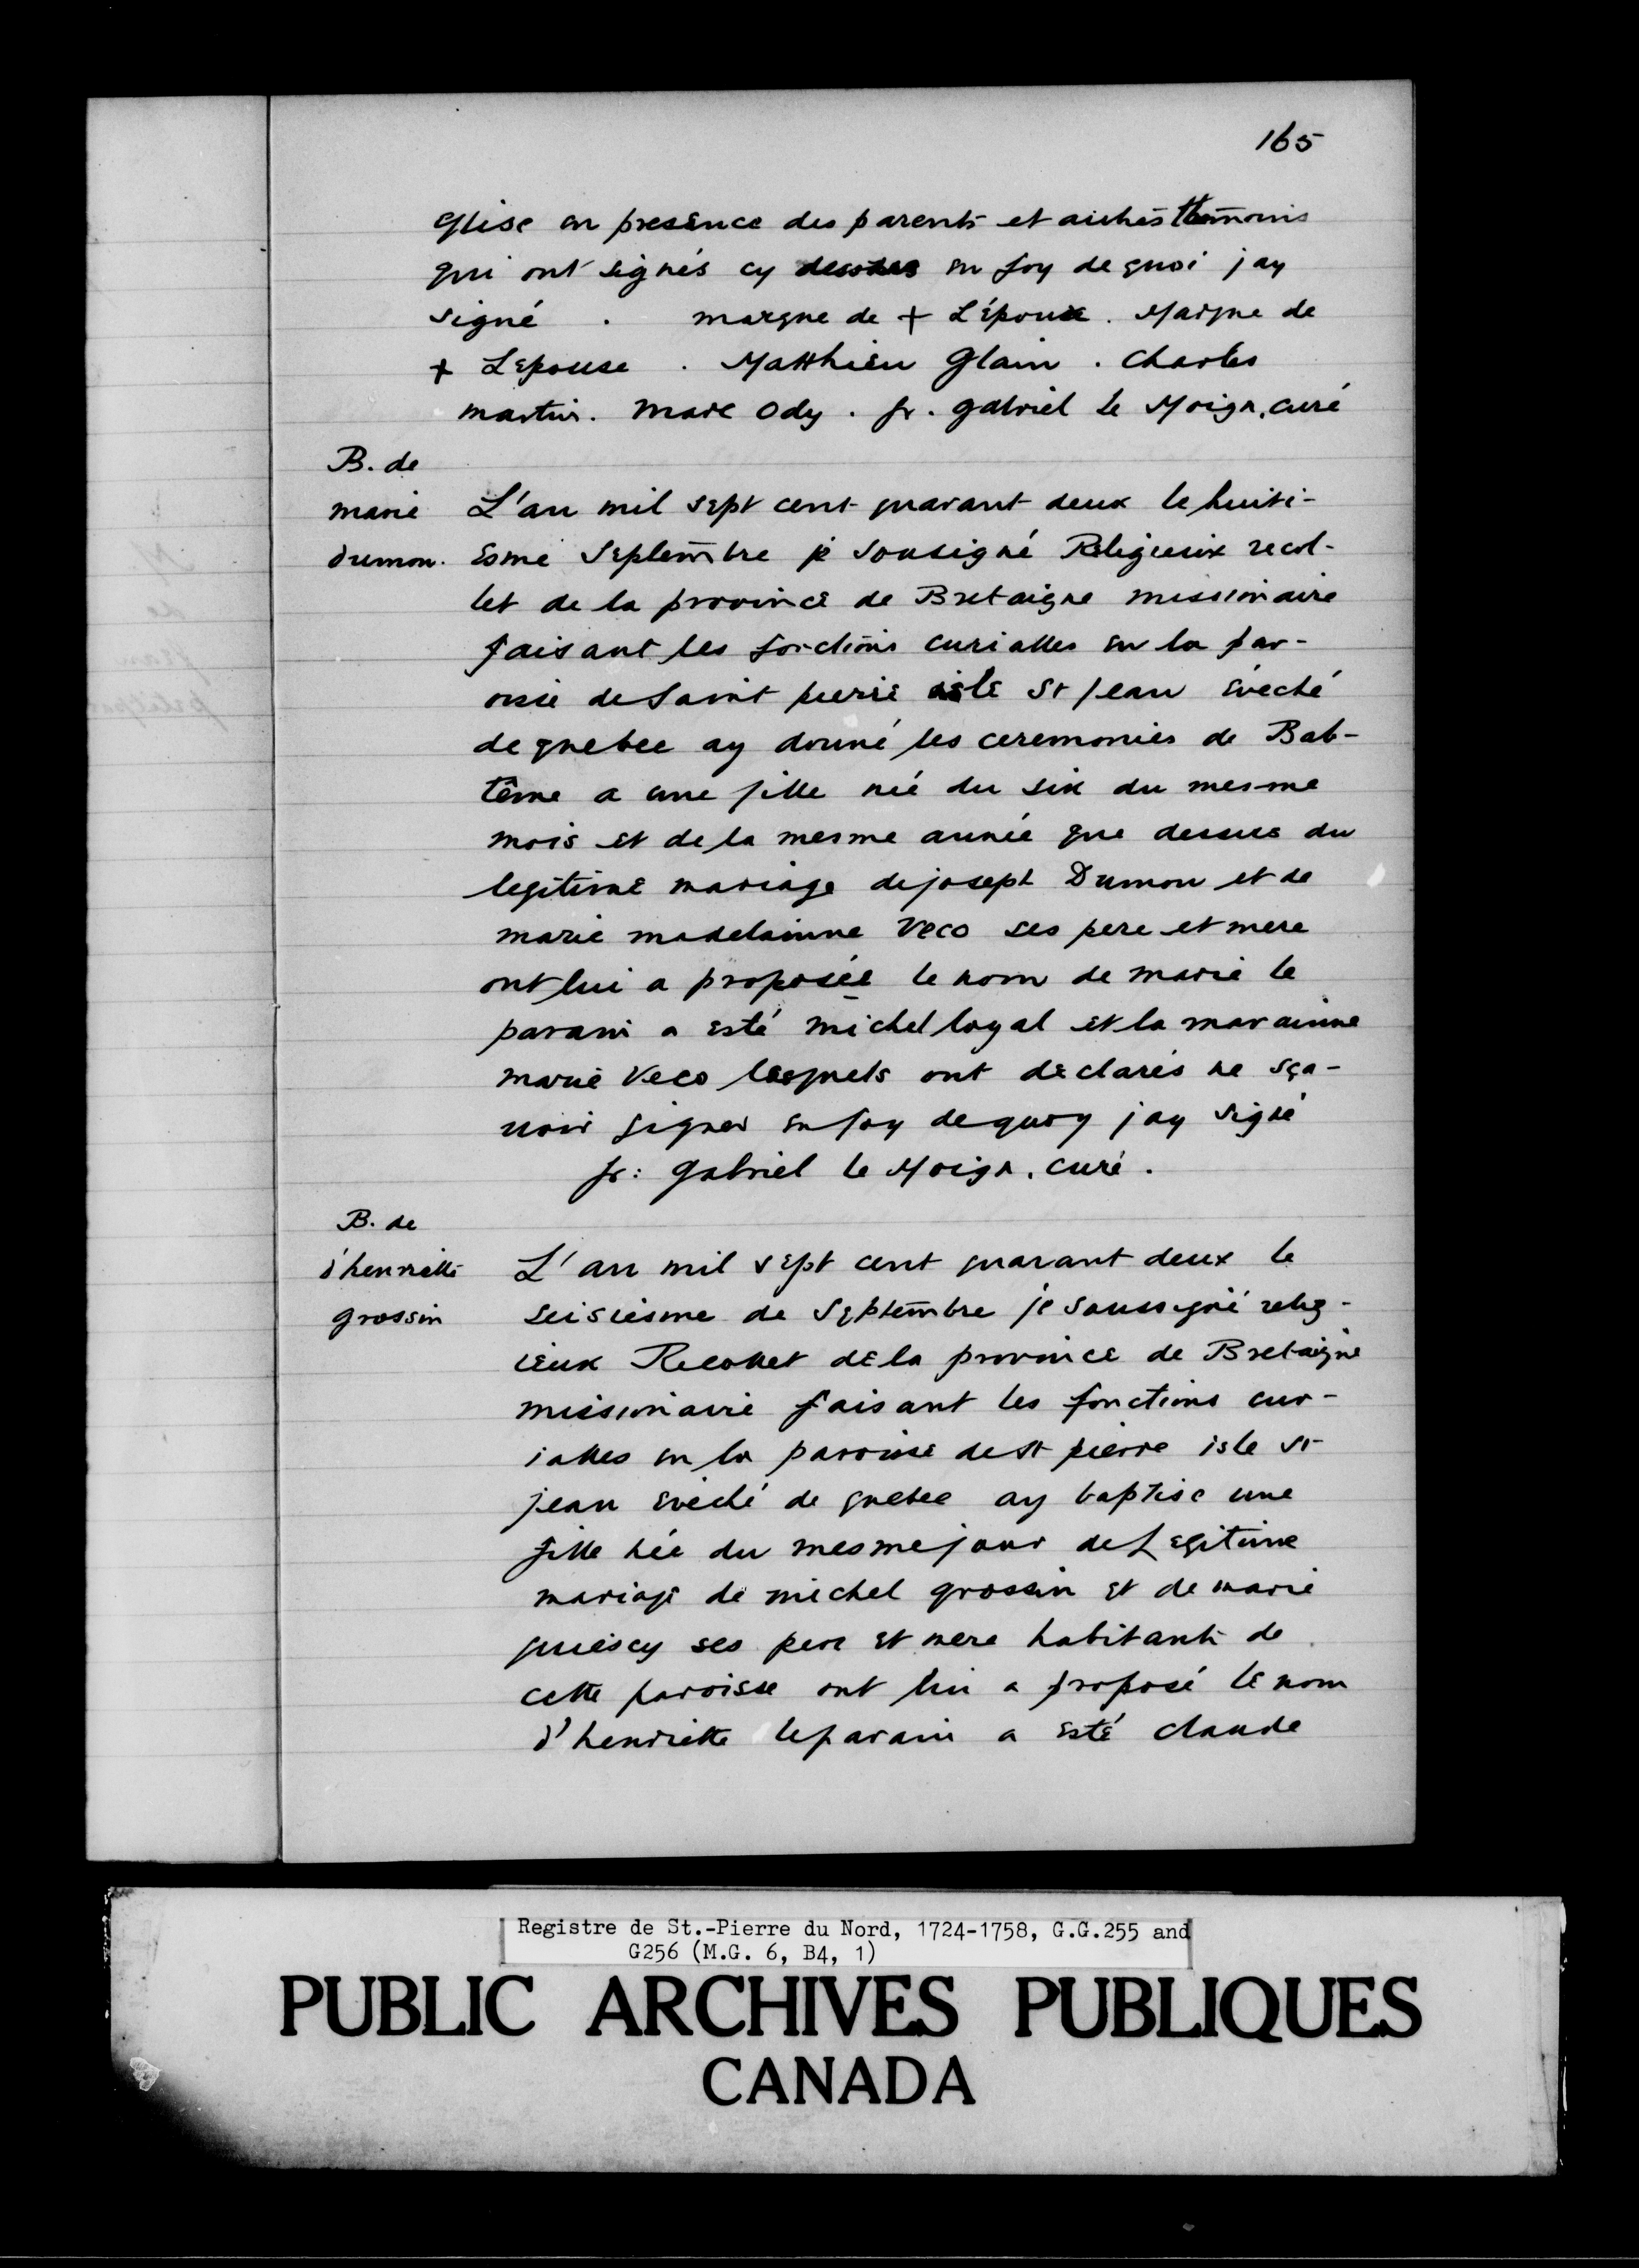 165
Eglise en presence des parents et autres temoins
qui ont signés cy dessous en foy de quoi jay
signé . marque de + L'époux . Marque de
+ Lepouse . Matthieu Glain . Charles
martin . Marc Ody . fr . gabriel le Moign, curé
B. de
marie
dumon.
L'an mil sept cent quarant deux le huiti-
esme Septembre je Sousigné Religieux recol-
let de la province de Bretaigne missionaire
faisant les fonctions curialles en la par-
oisse de Saint pierre isle St Jean évéché
de quebec ay donné les ceremonies de Bab-
tême a une fille née du six du mesme
mois et de la mesme année que dessus du
legitime mariage de joseph Dumon et de
marie madelainne Veco ses pere et mere
ont lui a proposée le nom de marie le
parain a esté michel loyal et la marainne
marie Veco lesquels ont declarés ne sça-
uoir signer en foy de quoy jay signé
fr : Gabriel le Moign, curé .
B. de
d'henriette
grossin
L'an mil sept cent quarant deux le
seisiesme de Septembre je Soussigné relig-
ieux Recollet de la province de Bretaigne
missionaire faisant les fonctions cur-
ialles en la paroisse de St pierre isle St
jean evéché de quebec ay baptisé une
fille née du mesme jour de Legitime
mariage de michel grossin et de marie
quiescy ses pere et mere habitants de
cette paroisse ont lui a proposé le nom
d'henriette le parain a esté claude
Registre de St.-Pierre du Nord, 1724-1758, G.G.255 and
G256 (M.G. 6, B4, 1)
PUBLIC ARCHIVES PUBLIQUES
CANADA